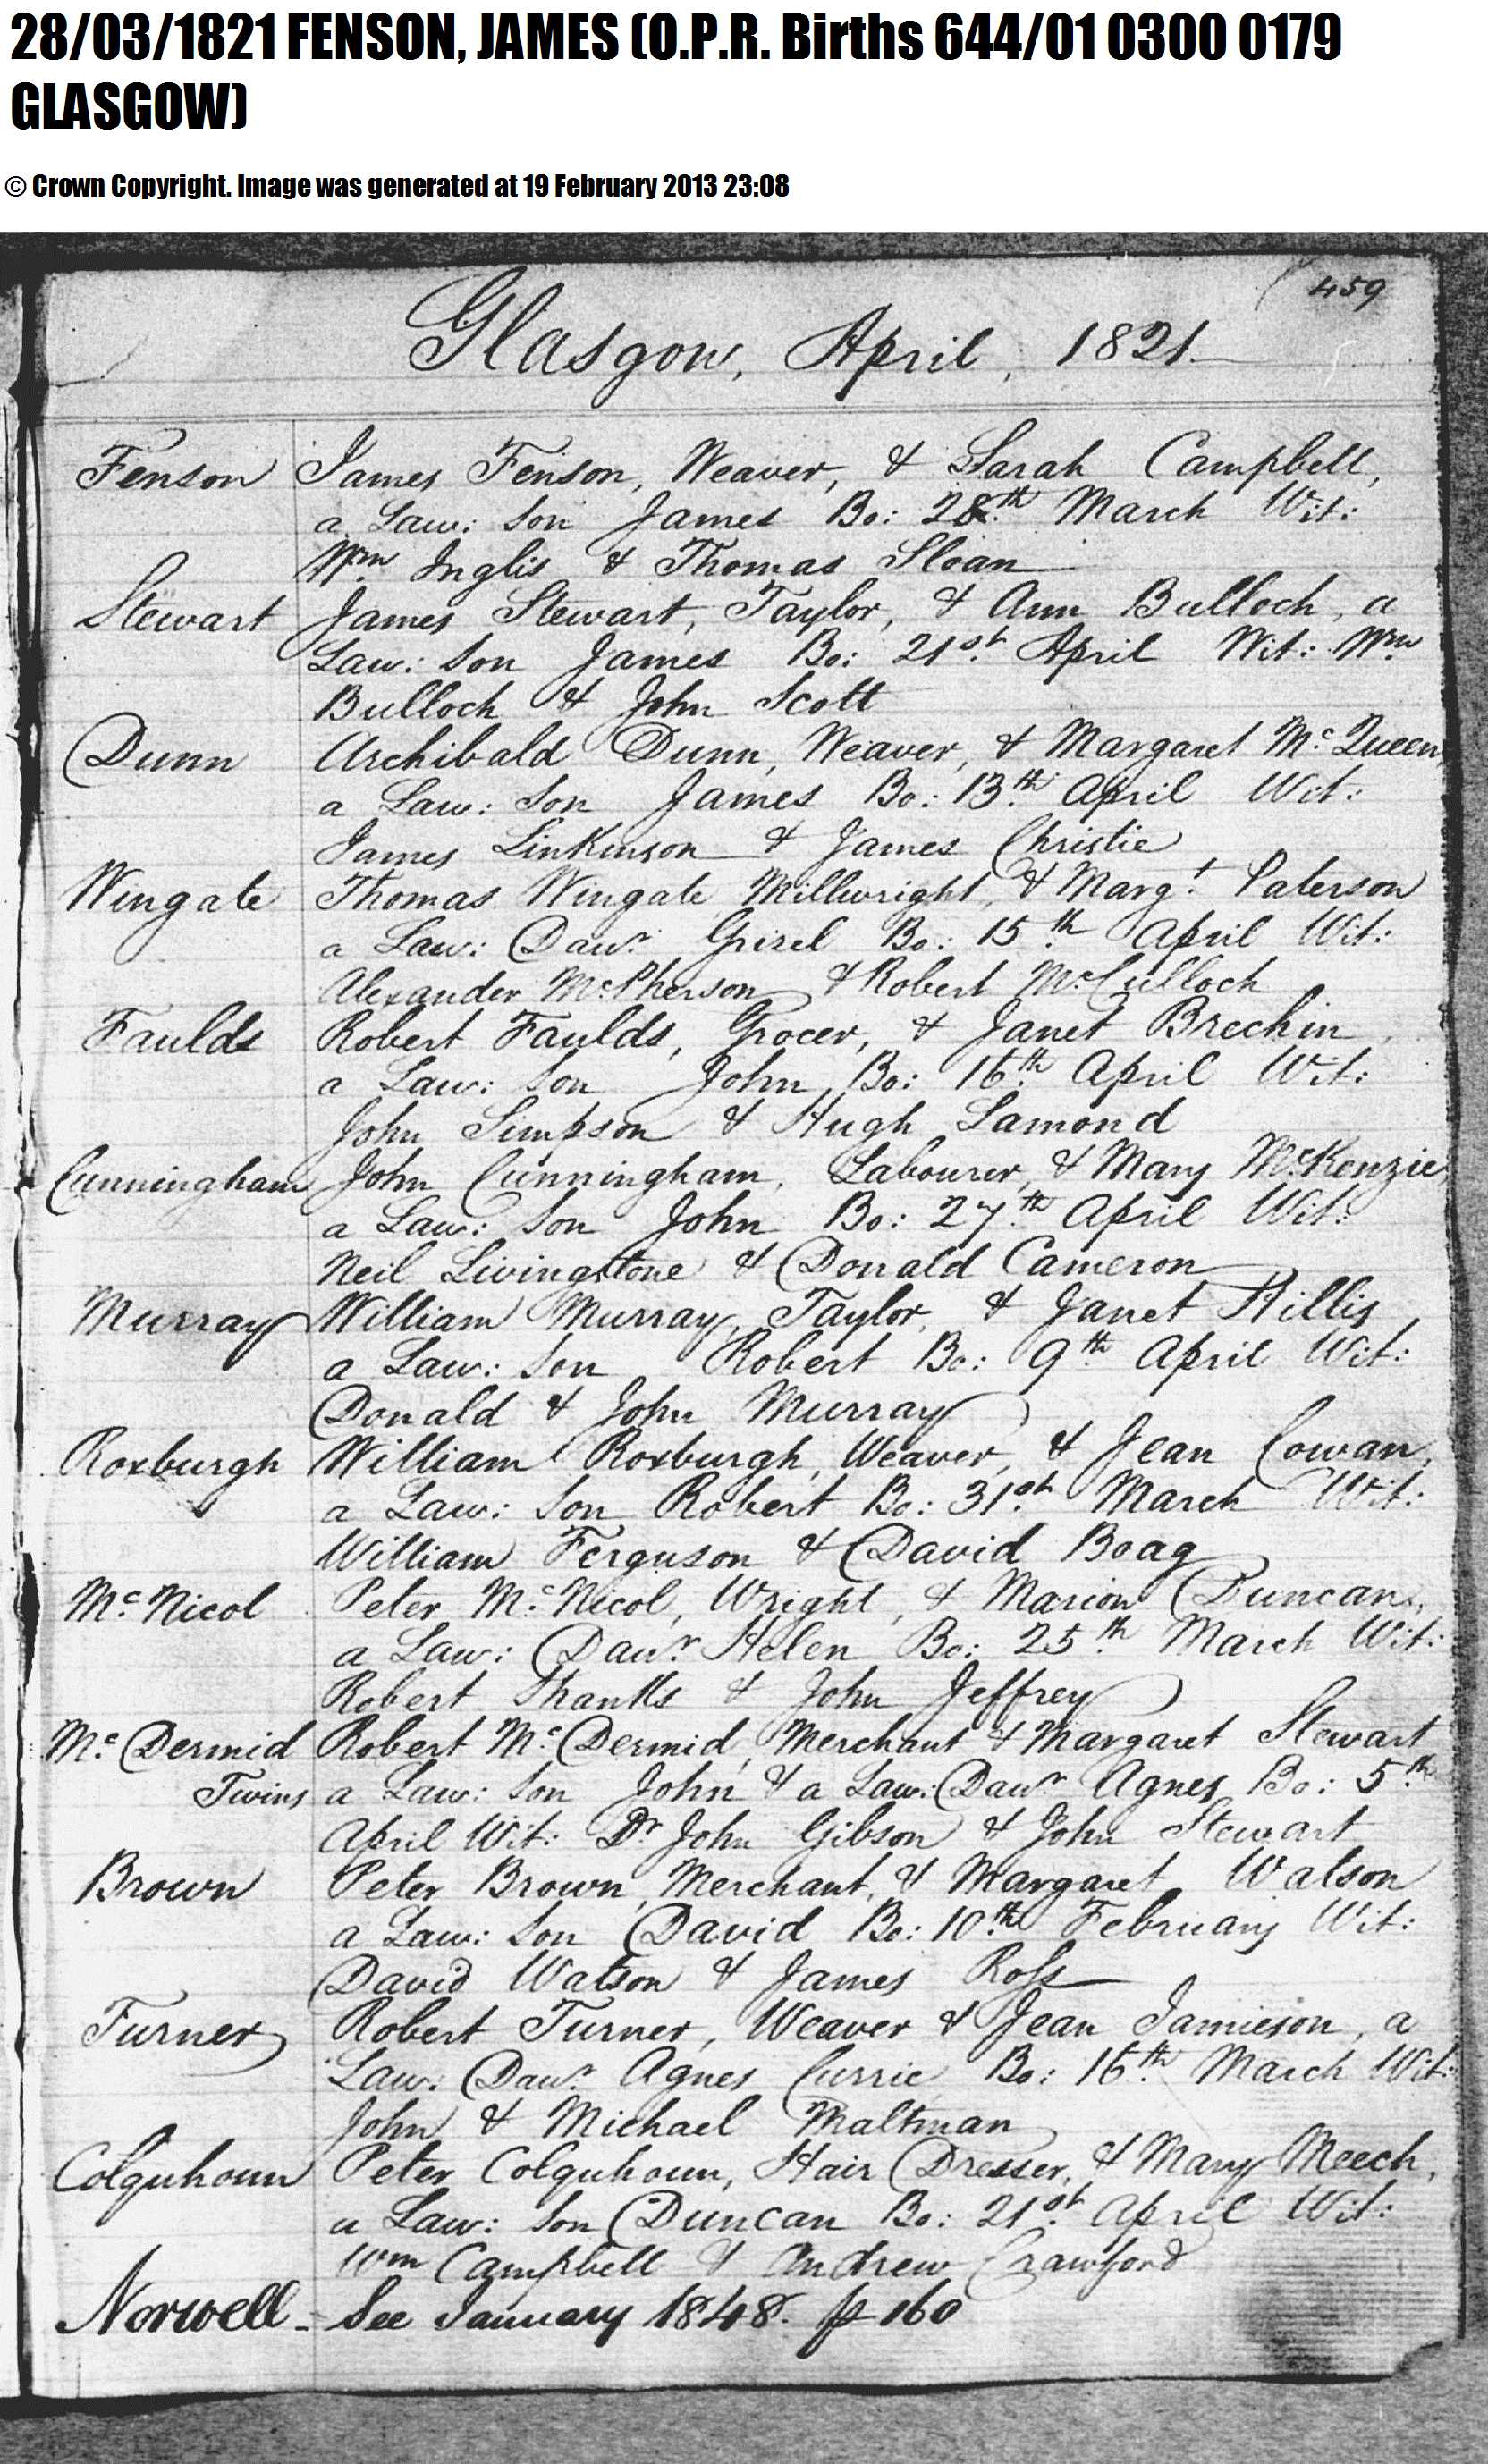 28/03/1821 FENSON, JAMES (O.P.R. Births 644/01 0300 0179
GLASGOW)
© Crown Copyright. Image was generated at 19 February 2013 23:08
459
Glasgow, April, 1821.
Fenson James Fenson, Weaver, & Sarah Campbell,
a Law: Son James Bo: 28th March Wit:
Wm Inglis & Thomas Sloan
Stewart James Stewart, Taylor, & Ann Bulloch, a
Law: Son James Bo: 21st April Wit: Wm
Bulloch & John Scott
Dunn Archibald Dunn, Weaver, & Margaret McQueen
a Law: Son James Bo: 13th April Wit:
James Linkinson & James Christie
Wingate Thomas Wingate Millwright, & Margt Paterson
a Law: Dawr Grizel Bo: 15th April Wit:
Alexander McPherson & Robert McCulloch
Faulds Robert Faulds, Grocer, & Janet Brechin
a Law: Son John Bo: 16th April Wit:
John Simpson & Hugh Lamond
Cunningham John Cunningham, Labourer, & Mary McKenzie
a Law: Son John Bo: 27th April Wit:
Neil Livingstone & Donald Cameron
Murray William Murray, Taylor, & Janet Hillis
a Law: Son Robert Bo: 9th April Wit:
Donald & John Murray
Roxburgh William Roxburgh, Weaver, & Jean Cowan,
a Law: Son Robert Bo: 31st March Wit:
William Ferguson & David Boag
McNicol Peter McNicol, Wright, & Marion Duncan,
a Law: Dawr Helen Bo: 25th March Wit:
Robert Shanks & John Jeffrey
McDermid Robert McDermid, Merchant & Margaret Stewart
Twins a Law: Son John, & a Law: Dawr Agnes Bo: 5th
April Wit: Dr John Gibson & John Stewart
Brown Peter Brown, Merchant, & Margaret Watson
a Law: Son David Bo: 10th February Wit:
David Watson & James Ross
Turner Robert Turner, Weaver & Jean Jamieson, a
Law: Dawr Agnes Currie Bo: 16th March Wit:
John & Michael Maltman
Colquhoun Peter Colquhoun, Hair Dresser, & Mary Meech,
a Law: Son Duncan Bo: 21st April Wit:
Wm Campbell & Andrew Crawford
Norwell - See January 1848. p 160